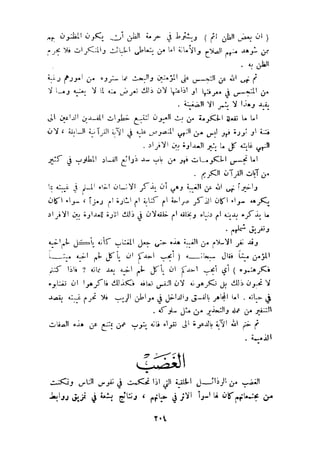 ( إن بعض الظن إثم ) ويشترط في حرمة الظن أن يكون المظنون به
من شوهد منهم الصلاح والأمانة أما من يتعاطى الخبائث والمنكرات فلا يحرم
ظن به .
ثم نهى الله عن التجسس على المؤمنين والبحث عما ستروه من أمورهم وتتبع
المسلمين في معرفة أخبارهم أو إذاعتها وذلك أن من حرم الله لا يعنيه ولا
يفيد وهذا لا يثمر إلا البغضاء .
أما ما تفعله الحكومة من بث العيون لتتبع خطوات المفسدين الداعين إلى
فتنة أو ثورة فهو ليس من المنصوص عليه في الآية القرآنية السابقة ، لأن
غايته النهي كل ما يثير العداوة بين الأفراد .
أما تجسس الحكومات فهو من باب سد ذرائع الفساد والمطلوب في كثير
من آيات القرآن الكريم .
وأخيراً نهى الله عن الغيبة وهي أن يذكر الانسان أخاه المسلم في غيبته بما
يكرهه سواء أكان الذكر صراحة أم كناية أم إشارة أم رمزاً ، وسواء أكان
ما يذكره مما يتعلق بدينه أو دنياه أو خلقه أو خلقته لأن في ذلك إثارة للعداوة بين الأفراد
وتفريق شملهم .
وقد نفر الإسلام من الغيبة هذه حتى جعل المغتاب كأنه يأكل لحم أخيه
المؤمن ميتاً فقال سبحانه ( أيحب أحدكم أن يأكل لحم أخيه ميتاً
فكرهتموه ) أي أيحب أحدكم أن يأكل لحم أخيه بعد مماته ؟ فإذا كنتم
لا تحبون ذلك بل تكرهونه لأن النفس تعافه فكذلك فاكرهوا أن تغتابوه
في حياته . أما المجاهر بالفسق والداخل في مواطن الريب فلا تحرم غيبته بقصد
التنفير من عمله والتحذير من مثل سلوكه .
ثم ختم الله الآية بالدعوة إلى تقواه فإنه يتوب عمن يمتنع عن هذه الصفات
الذميمة .
الغضب
الغضب من الرذائل الخلقية التي إذا تمكنت في نفوس الناس وتمكنت
من مجتمعاتهم كان لها أسوأ الأثر في حياتهم ، ونتائج سيئة في تمزيق روابط
٢٠٤